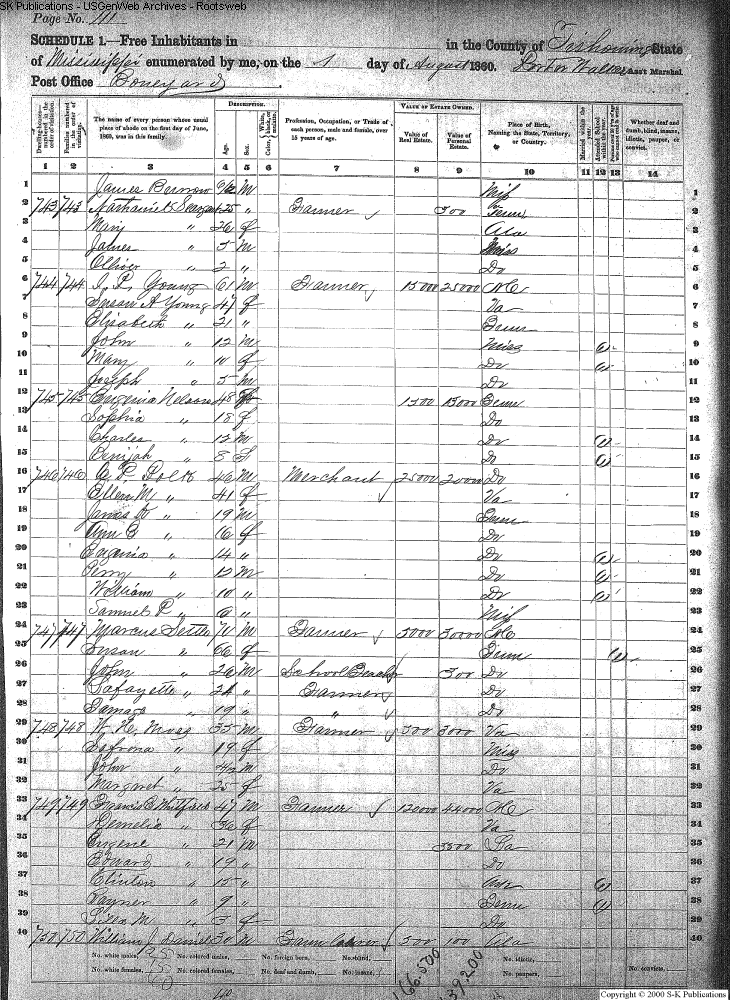 SK Publications - USGenWeb Archives - Rootsweb
Page No. 111
SCHEDULE 1.—Free Inhabitants in in the County of Tishomingo State
of Mississippi enumerated by me, on the 1 day of August 1860. Ass't Marshal
Post Office Boneyard
DESCRIPTION. VALUE OF ESTATE OWNED.
Dwelling-houses—numbered in the order of visitation. Families numbered in the order of visitation. The name of every person whose usual place of abode on the first day of June, 1860, was in this family. Age. Sex. Color, White, black, or mulatto. Profession, Occupation, or Trade of each person, male and female, over 15 years of age. Value of Real Estate. Value of Personal Estate. Place of Birth, Naming the State, Territory, or Country. Married within the year. Attended School within the year. Whether deaf and dumb, blind, insane, idiotic, pauper, or convict.
1 2 3 4 5 6 7 8 9 10 11 12 13 14
1 James 9/12 M Miss 1
2 743 743 Nathaniel 25 " Farmer 300 Tenn 2
3 Mary " 26 f Ala 3
4 James " 5 m Miss 4
5 Olliver " 2 " Do 5
6 744 744 Young 61 m Farmer 15000 25000 NC 6
7 Susan A Young 47 f Va 7
8 Elisabeth " 21 " Tenn 8
9 John " 12 m Miss (1) 9
10 Mary " 10 f Do (1) 10
11 Joseph " 5 m Do 11
12 745 745 Eugenia Nelson 48 1500 15000 Tenn 12
13 Sophia " 18 f Do 13
14 Charles " 12 m Do (1) 14
15 " 8 Do (1) 15
16 746 746 Polk 46 M Merchant 25000 20000 Do 16
17 Ellen M " 41 f Va 17
18 James K " 19 M Tenn 18
19 Ann " 16 f Do 19
20 Eugenia " 14 " Do (1) 20
21 Perry " 12 M Do (1) 21
22 William " 10 " Do (1) 22
23 Samuel P " 6 " Miss 23
24 747 747 Marcus Settle 70 M Farmer 5000 30000 NC 24
25 Susan " 66 f Tenn (1) 25
26 John " 26 M School Teacher 300 Do 26
27 Lafayette " 24 " Farmer Do 27
28 " 19 " " Do 28
29 748 748 W. Moss 35 M Farmer 500 3000 Va 29
30 " 19 f Miss 30
31 John " M Do 31
32 Margret " 25 f Va 32
33 749 749 Francis Whitfield 47 M Farmer 120000 44000 NC 33
34 " 36 f Va 34
35 Eugene " 21 M 3500 35
36 Edward " 19 " Do 36
37 Clinton " 15 " (1) 37
38 Rayner " 9 " Tenn (1) 38
39 M " 3 f Do 39
40 750 750 William J Daniel 30 M Farm Laborer 500 100 Ala 40
No. white males, 25 No. colored males, No. foreign born. No. blind, No. idiotic, No. convict,
No. white females, 15 No. colored females, No. deaf and dumb, No. insane, No. paupers,
166,500 139,200
Copyright © 2000 S-K Publications